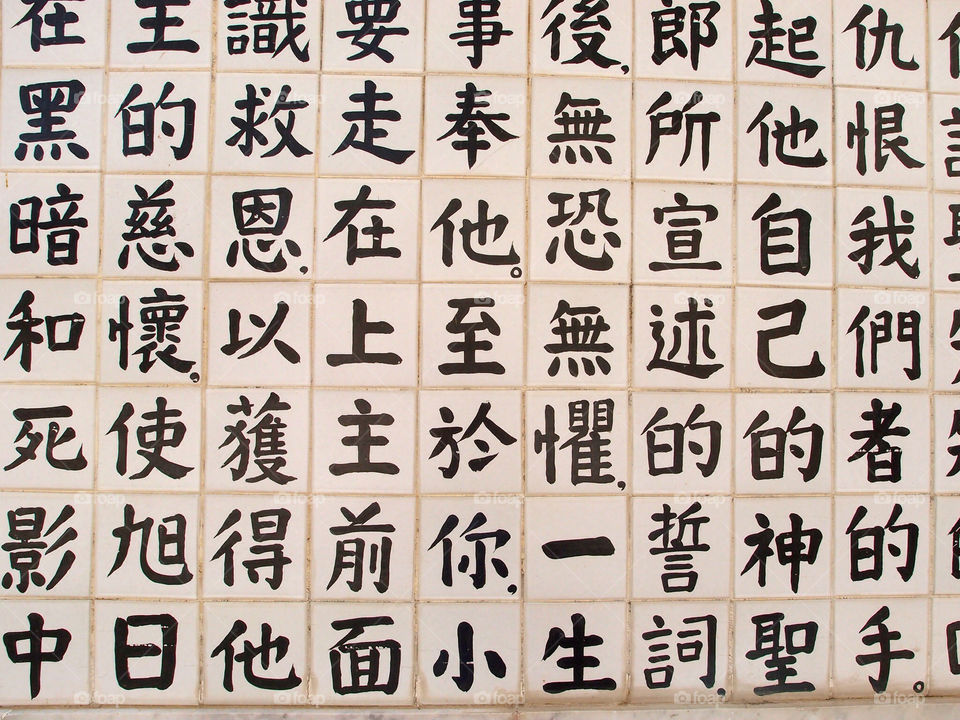 仇恨我們者的手。
起他自己的神聖
郎所宣述的誓詞,
後,無恐無懼,一生
事奉他。至於你,小
要走在上主前面
識救恩,以獲得他
主的慈懷,使旭日
在黑暗和死影中